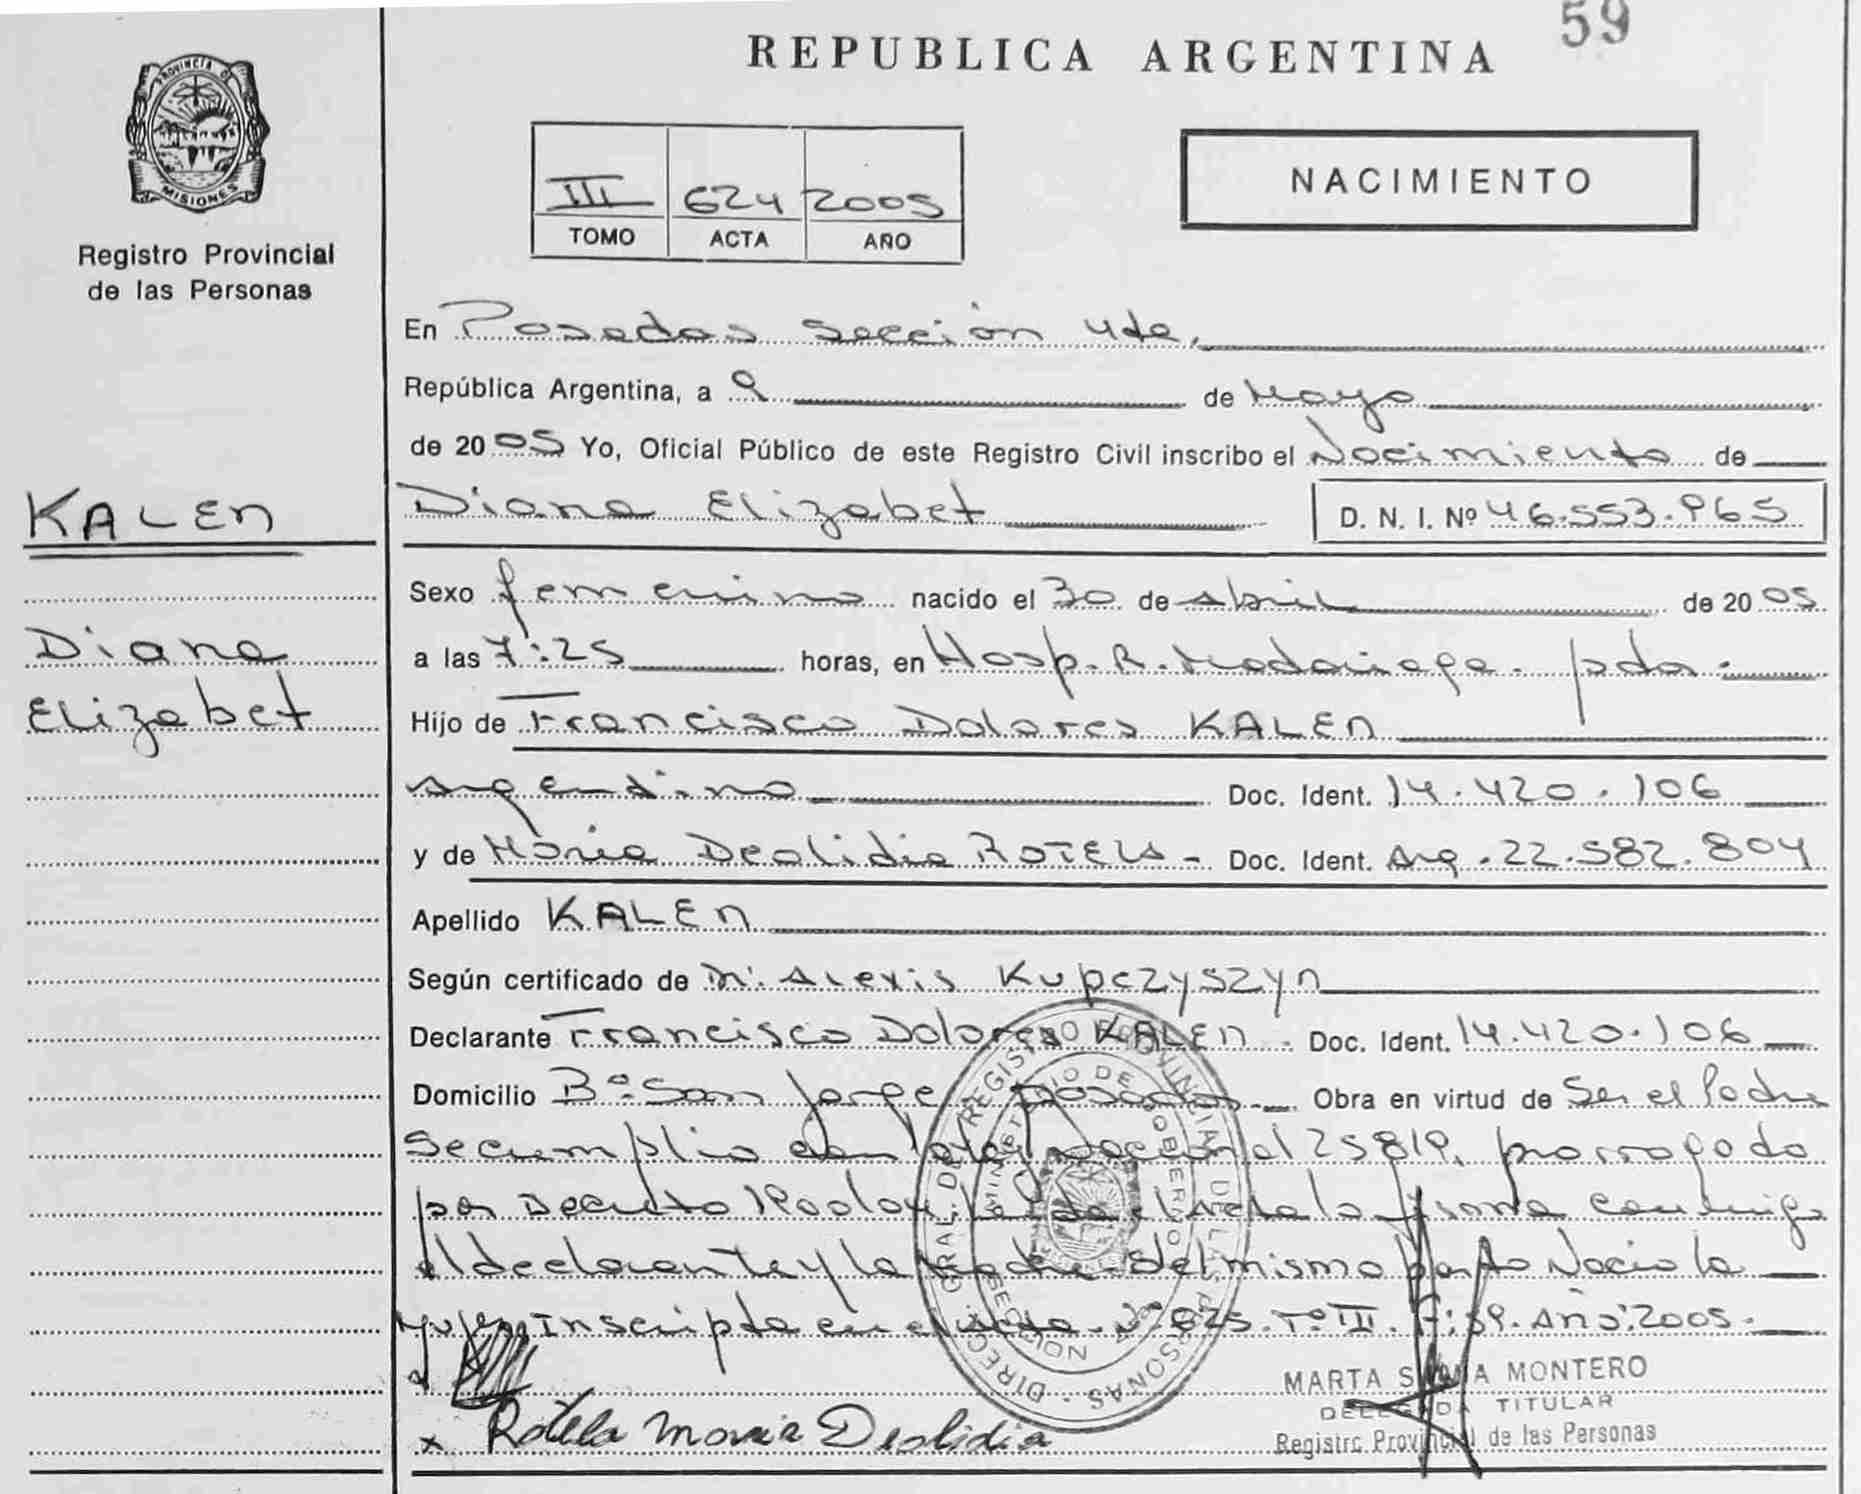 59
REPUBLICA ARGENTINA
PROVINCIA DE
MISIONES
Registro Provincial
de las Personas
III 624 2005
TOMO ACTA AÑO
NACIMIENTO
En Posadas sección 4ta,
República Argentina, a 9 de Mayo
de 2005 Yo, Oficial Público de este Registro Civil inscribo el Nacimiento de
KALEN
Diana Elizabet D. N. I. Nº 46.553.965
Sexo femenino nacido el 30 de Abril de 2005
Diana
a las 7:25 horas, en Hosp. R. Madariaga. pdas.
Elizabet
Hijo de Francisco Dolores KALEN
Argentino Doc. Ident. 14.420.106
y de María Deolidia ROTELA - Doc. Ident. Arg. 22.582.804
Apellido KALEN
Según certificado de Alexis Kupczyszyn
Declarante Francisco Dolores KALEN - Doc. Ident. 14.420.106
Domicilio Bº San Jorge Posadas - Obra en virtud de Ser el Padre
Se cumplio con Ley Nacional 25819, prorrogada
por Decreto el Acta la firma conmigo
el declarante y la Madre del mismo parto Nacio la
inscripta en el Acta Nº 625. Tº III. Fº 59. Año 2005.
DIRECC. GRAL. DEL REGISTRO PROVINCIAL DE LAS PERSONAS
MINISTERIO DE GOBIERNO
SECCION 4ta
MARTA MONTERO
DELEGADA TITULAR
Registro Provincial de las Personas
x Rotela Maria Deolidia